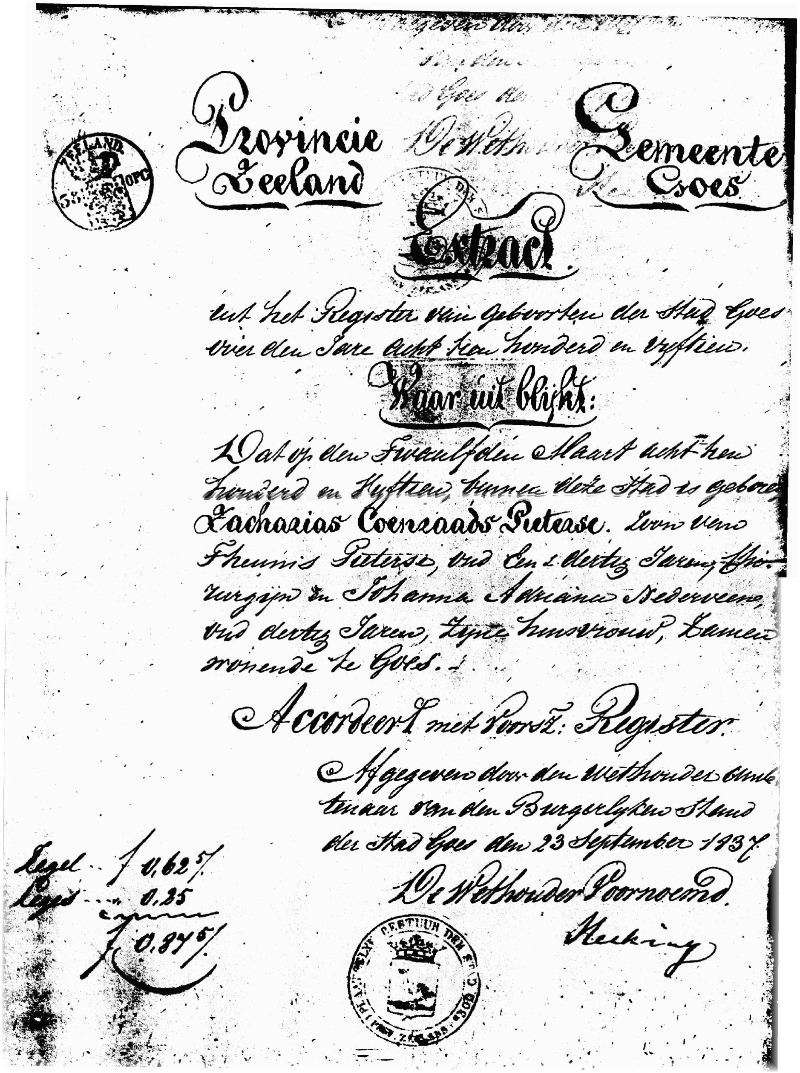 ZEELAND
38 OPC
Provincie
Zeeland
Gemeente
Goes
Extract
uit het Register van geboorten der Stad Goes
over den Jare acht tien honderd en vyftien.
Waar uit blijkt:
Dat op den Twaalfden Maart acht tien
honderd en Vyftien, binnen deze Stad is geboren
Zacharias Coenraads Pieterse. Zoon van
Theunis Pieterse, oud Een & dertig Jaren, Chi-
rurgijn En Johanna Adriana Nederveen,
oud dertig Jaren, Zyne huisvrouw, Zamen
wonende te Goes.
Accordeert met Voorsz: Register.
Afgegeven door den Wethouder Amb
tenaar van den Burgerlyken Stand
der Stad Goes den 23 September 1837.
Zegel f 0,62 5/.
Leges " 0.25
f 0.87 5/.
De Wethouder Voornoemd.
PLAATSELYK BESTUUR DER STAD GOES
PROV. ZEELAND